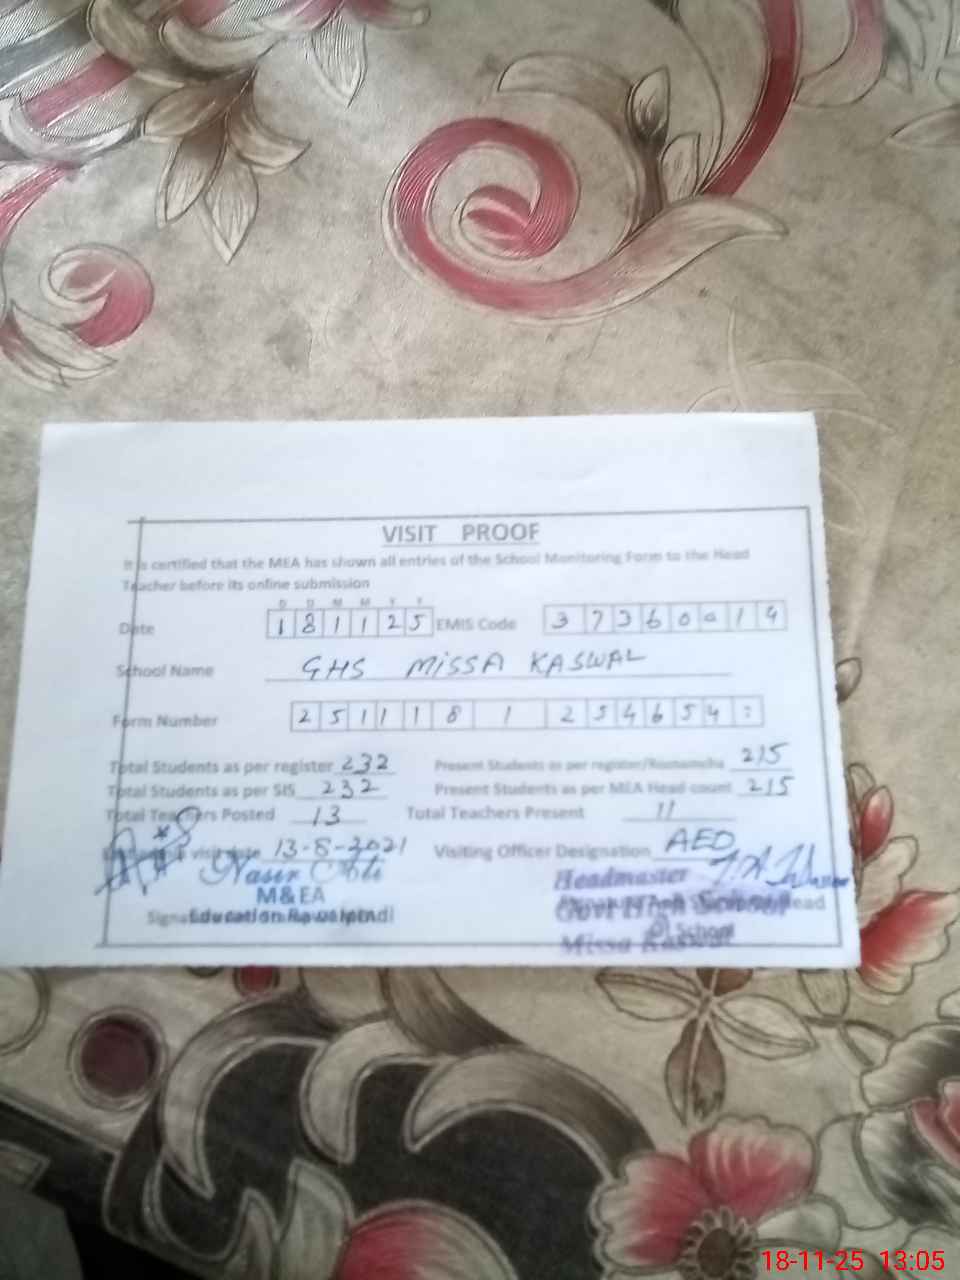 VISIT PROOF
It is certified that the MEA has shown all entries of the School Monitoring Form to the Head
Teacher before its online submission
D D M M Y Y
Date 1 8 1 1 2 5 EMIS Code 3 7 3 6 0 0 1 4
School Name GHS MISSA KASWAL
Form Number 2 5 1 1 1 8 1 2 5 4 6 5 4 :
Total Students as per register 232 Present Students as per register/Roznamcha 215
Total Students as per SIS 232 Present Students as per MEA Head count 215
Total Teachers Posted 13 Total Teachers Present 11
visit date 13-8-2021 Visiting Officer Designation AEO
Nasir Ali Headmaster
M&EA Govt High School Head
Education Rawalpindi School
Missa Kaswal
18-11-25 13:05